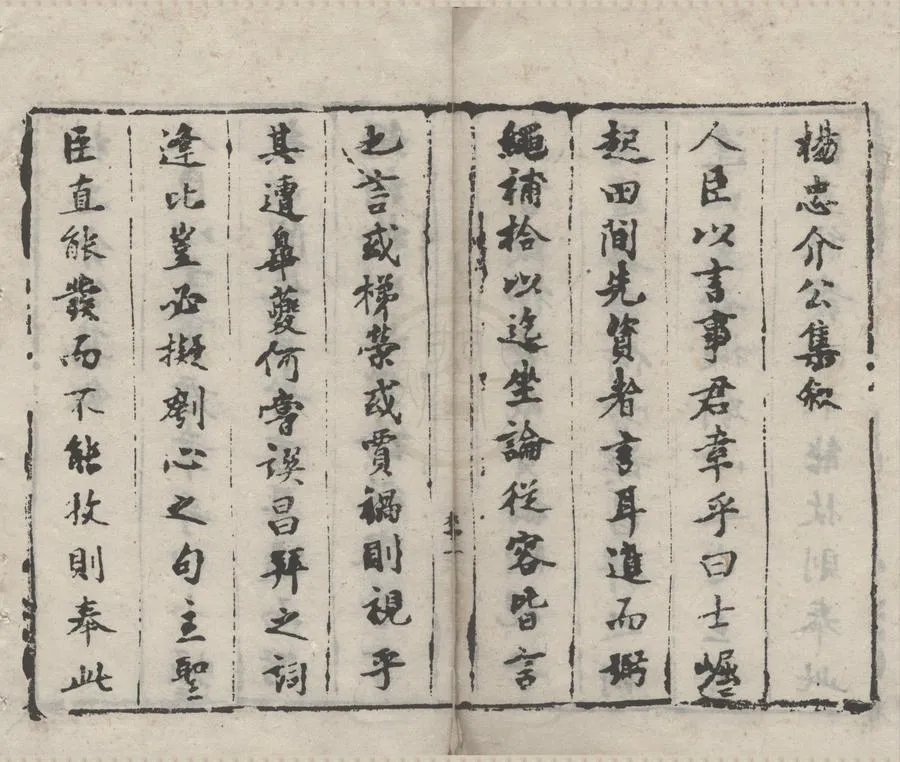 楊忠介公集叙
人臣以言事君幸乎曰士崛
起田間先資者言耳進而弼
繩補拾以迄坐論從容皆言
也言或梯榮或賈禍則視乎
其遭皐夔何嘗昌拜之詞
逢比豈必擬心之句主聖
臣直能發而不能收則奉此